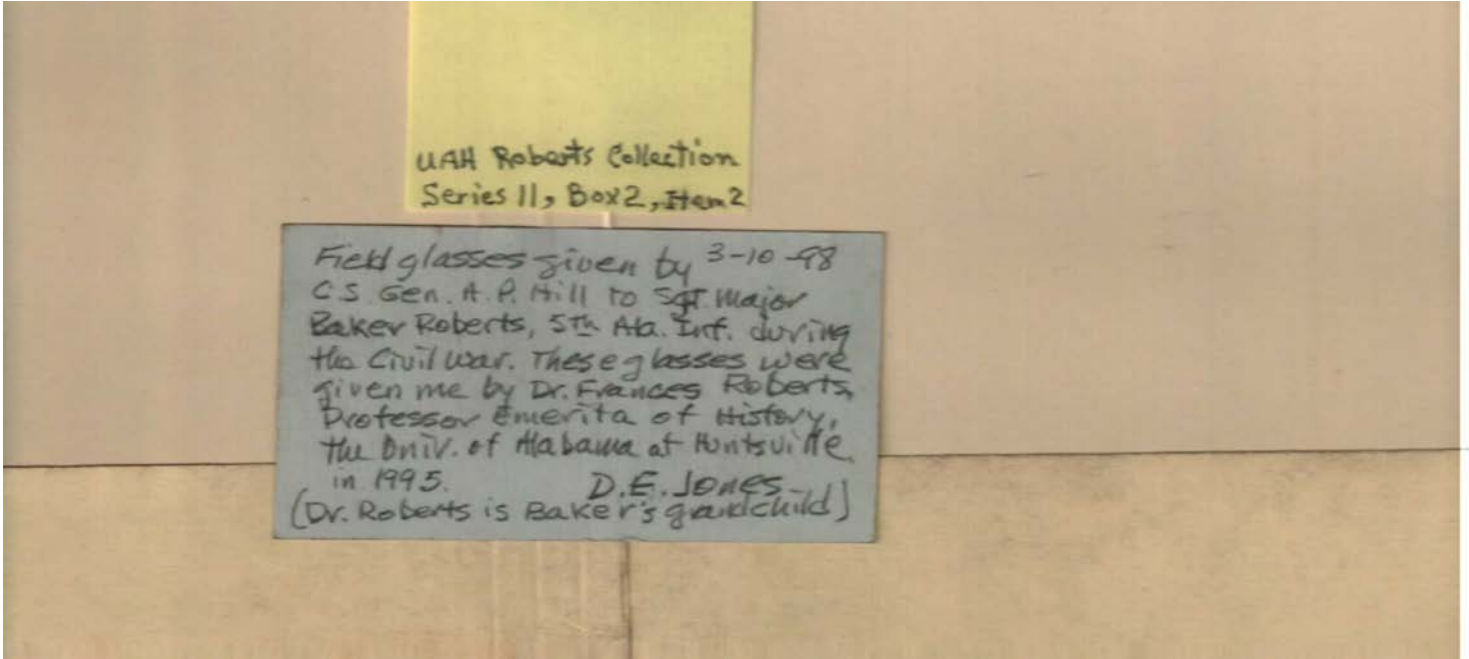 UAH Roberts Collection
Series 11, Box 2, Item 2
Field glasses given by 3-10-98
C.S. Gen. A.P. Hill to Sgt. Major
Baker Roberts, 5th Ala. Inf. during
the Civil War. These glasses were
given me by Dr. Frances Roberts,
Professor Emerita of History,
the Univ. of Alabama at Huntsville
in 1995. D.E. Jones
(Dr. Roberts is Baker's grandchild)